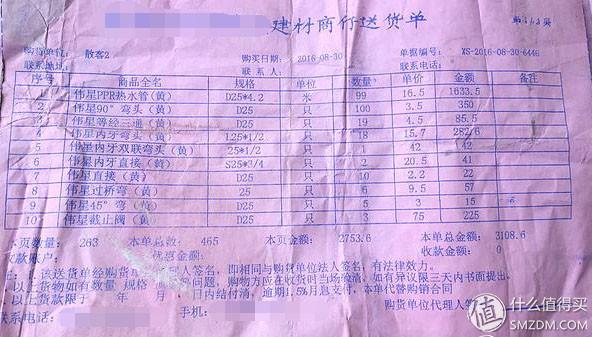 建材商行送货单
购货单位: 散客2 购买日期: 2016-08-30 单据编号: XS-2016-08-30-6446
联系地址: 联系人: 联系电话:
序号 商品全名 规格 单位 数量 单价 金额 备注
1 伟星PPR热水管(黄) D25*4.2 米 99 16.5 1633.5
2 伟星90°弯头(黄) D25 只 100 3.5 350
3 伟星等经三通(黄) D25 只 19 4.5 85.5
4 伟星内牙弯头(黄) L25*1/2 只 18 15.7 282.6
5 伟星内牙双联弯头(黄) 25*1/2 只 1 42 42
6 伟星内牙直接(黄) S25*3/4 只 2 20.5 41
7 直接(黄) D25 只 10 2.2 22
8 伟星过桥弯(黄) 25 只 6 9.5 57
9 伟星45°弯(黄) D25 只 5 3 15
10 伟星截止阀(黄) D25 只 3 75 225
本页数量: 263 本单总数: 465 本页金额: 2753.6 本单总金额: 3108.6
收款账户: 优惠金额: 收款金额: 0
该送货单经购货单 签名,即相同与购货单位法人签名,有法律效力。
以上货物如有数量 规格 问题,购物方应在收货时当场验清,如有异议限三天内书面提出,
以上货款限于 年 月 日内结付清,逾期1.5%月息支付,本单代替购销合同
购货单位代理人签
联系电话: 手机:
值 什么值得买
SMZDM.COM